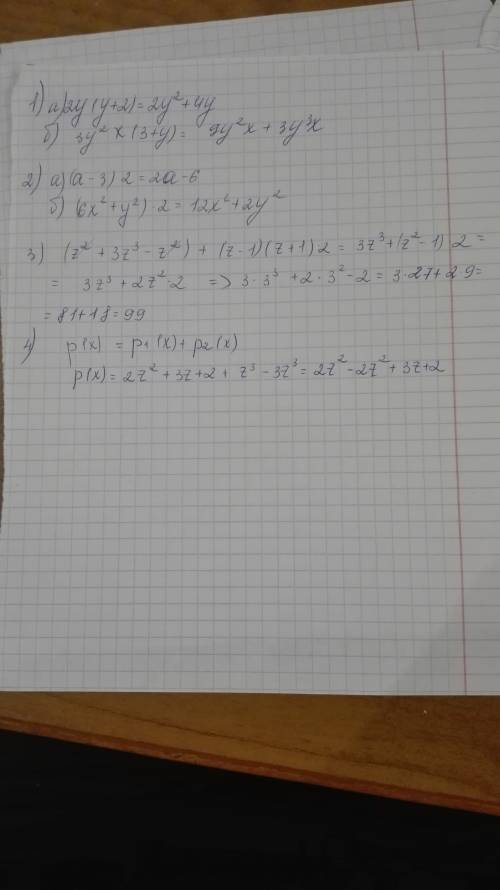 1) а) 2y (y+2) = 2y² + 4y
б) 3y² x (3+y) = 9y²x + 3y³x
2) а) (a - 3) 2 = 2a - 6
б) (6x² + y²) · 2 = 12x² + 2y²
3) (z² + 3z³ - z²) + (z - 1)(z + 1) 2 = 3z³ + (z² - 1) 2 =
= 3z³ + 2z² - 2 => 3 · 3³ + 2 · 3² - 2 = 3 · 27 + 2 9 =
= 81 + 18 = 99
4) p(x) = p₁(x) + p₂(x)
p(x) = 2z² + 3z + 2 + z³ - 3z³ = 2z² - 2z² + 3z + 2